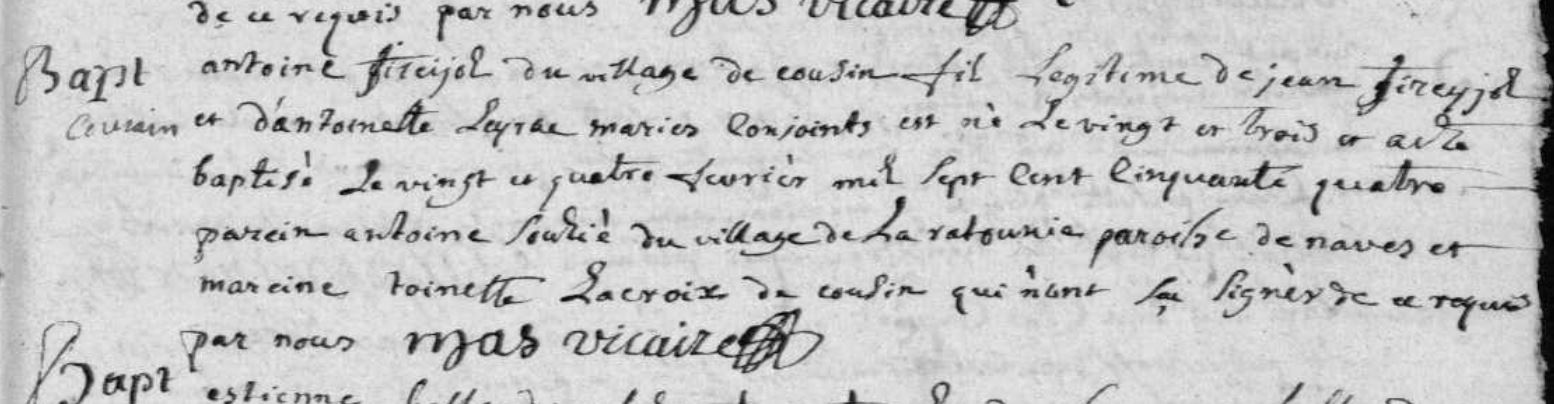 de ce requis par nous Mas vicaire
Bapt antoine fireijol du village de cousin fil legitime de jean fireyjol
Cousin et d'antoinette Leyrac maries Conjoints est nè Le vingt et trois et a etè
baptisè Le vingt et quatre fevrièr mil sept Cent Cinquante quatre
parein antoine Souliè du village de La ratounie paroisse de naves et
mareine toinette Lacroix de cousin qui n'ont sçu signèr de ce requis
par nous Mas vicaire
Bapt estienne